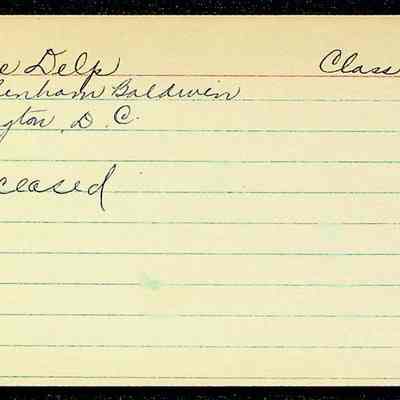 e Delp Class
enham Baldwin
gton, D.C.
ceased